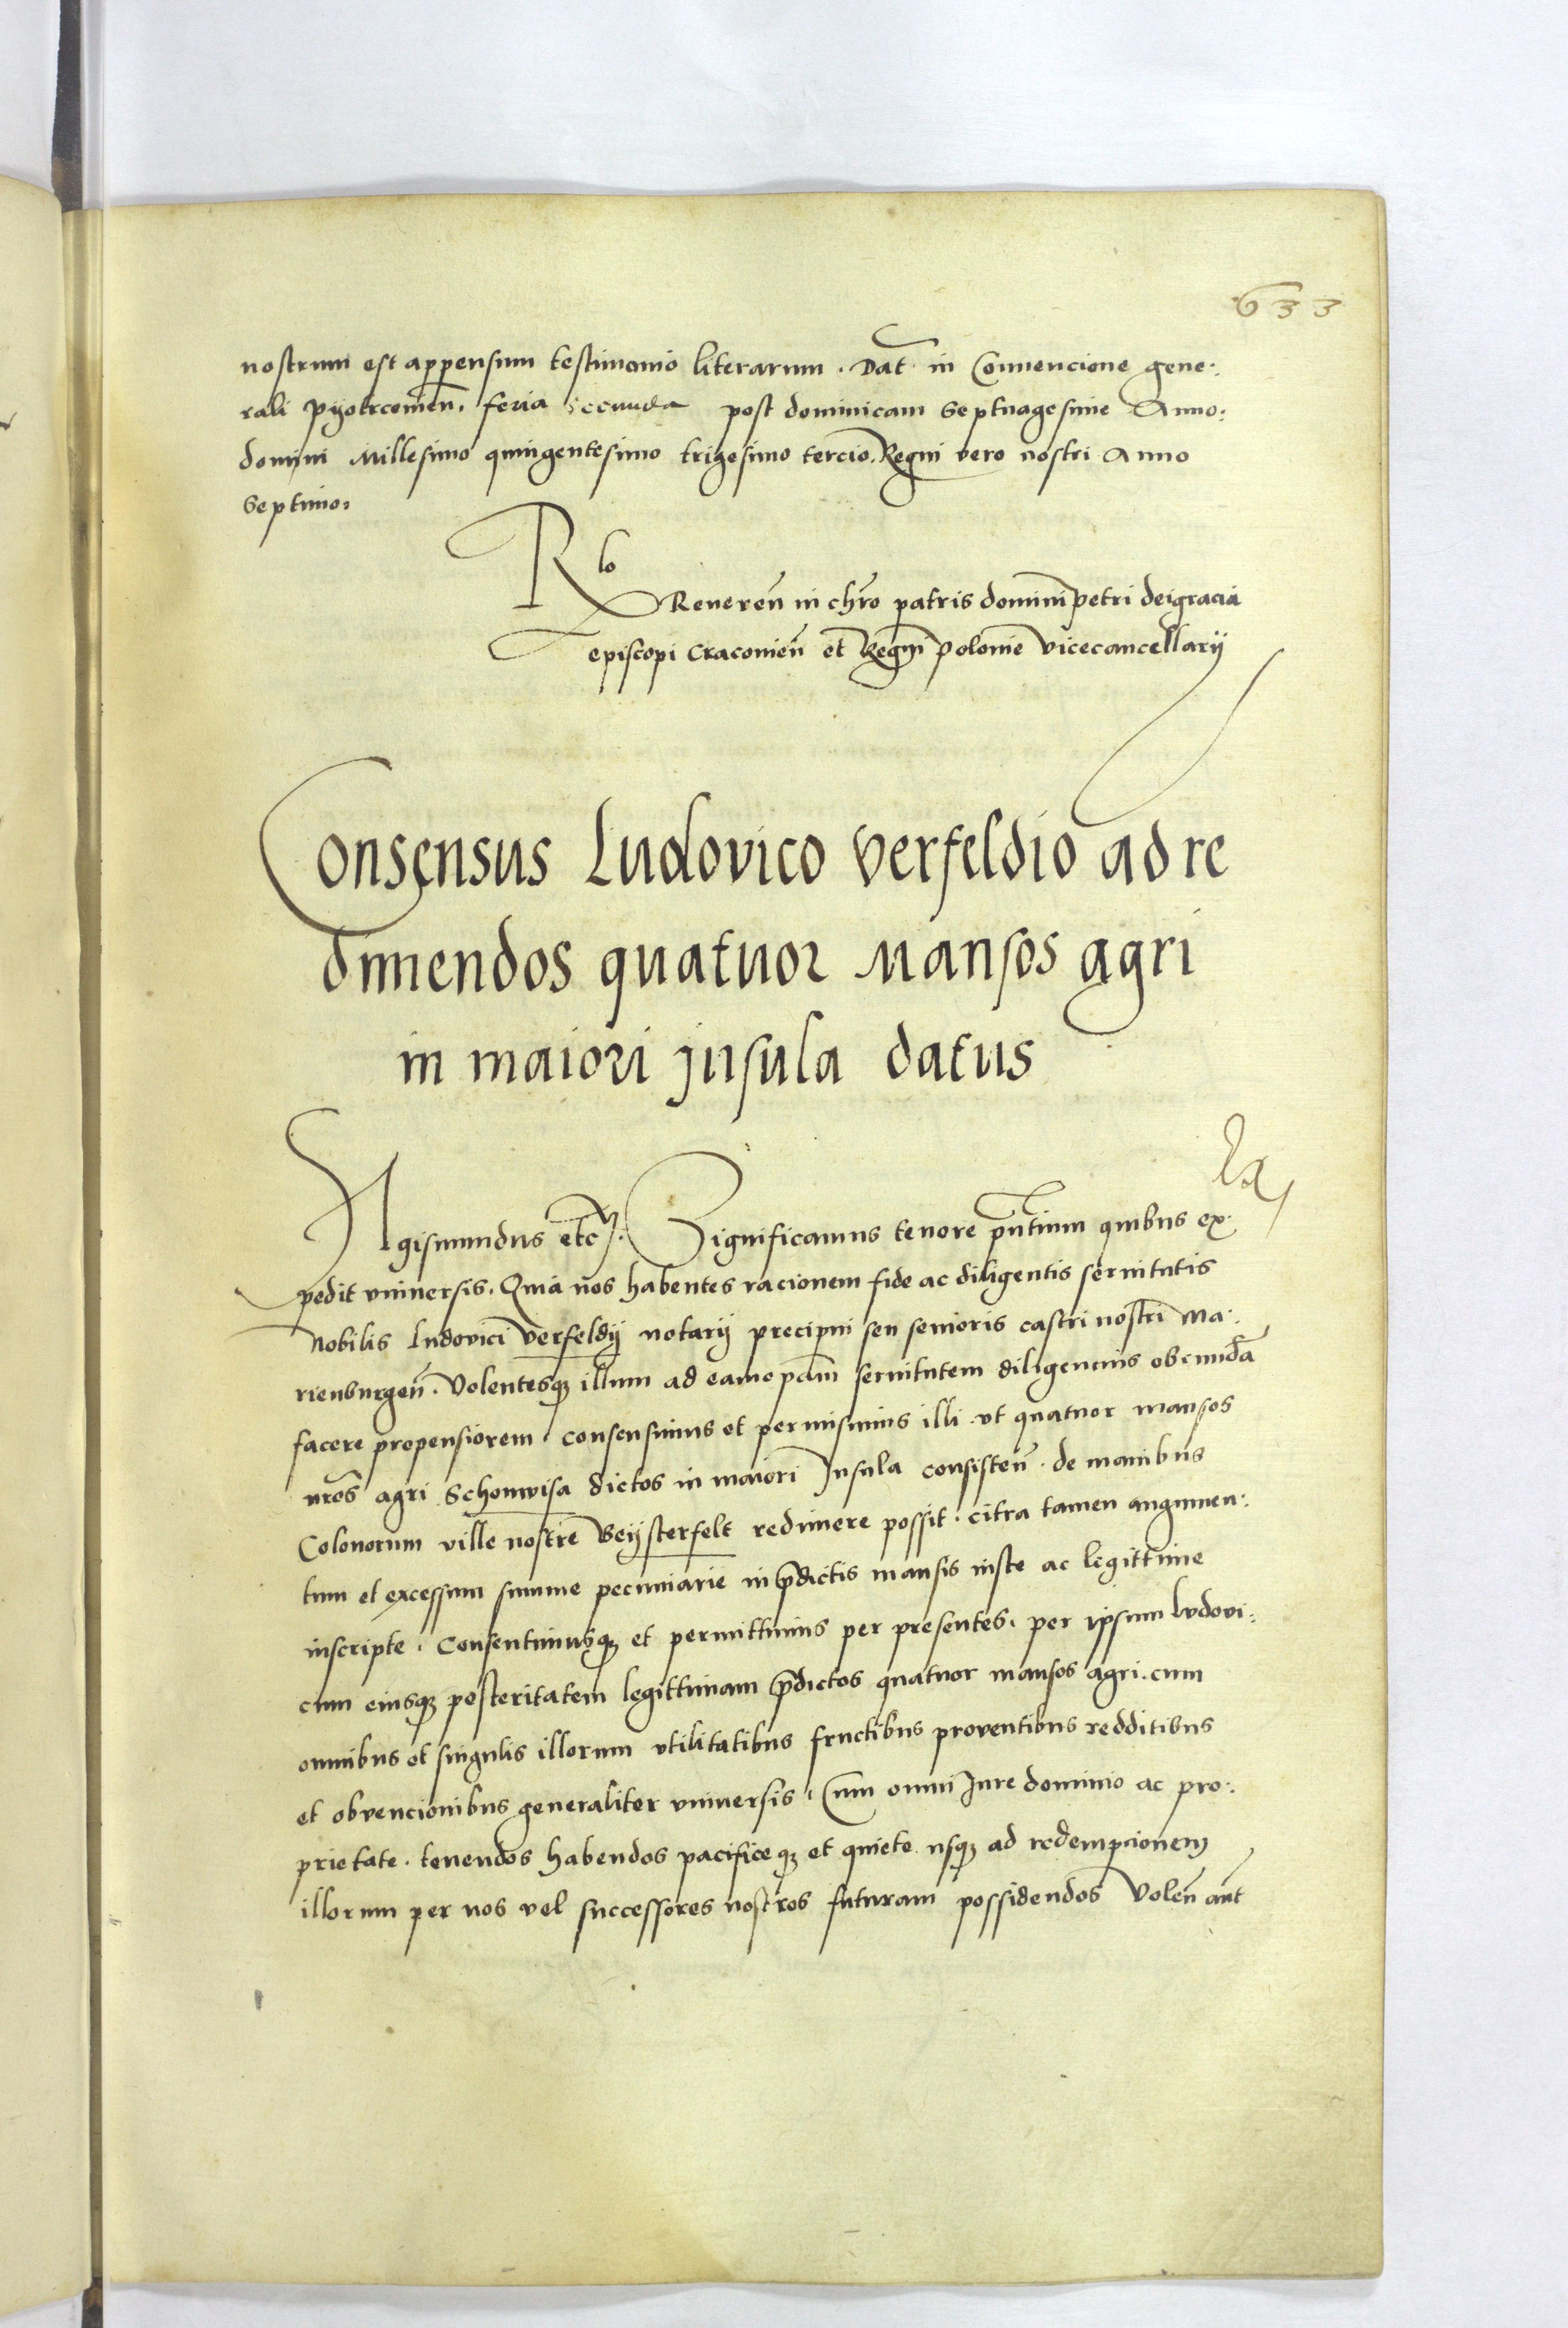 633
nostrum est appensum testimonio literarum. Dat in Convencione gene:
rali pyotrcovien. feria secunda post dominicam Septuagesime Anno:
domini Millesimo quingentesimo trigesimo tercio. Regni vero nostri Anno
Septimo.
Rlo
Reveren in chro patris domini petri dei gracia
episcopi Cracovien et Regni polonie vicecancellarij
Consensus Ludovico verfeldio ad re
dimendos quatuor Mansos agri
in maiori jnsula datus
Sigismundus etc. Significamus tenore pntium quibus ex:
pedit vniversis. Quia nos habentes racionem fide ac diligentis servitutis
Nobilis Ludovici verfeldij notarij precipui seu senioris castri nostri Ma:
rienburgen. Volentesq illum ad eam servitutem diligencius obeundam
facere propensiorem. consensimus et permisimus illi vt quatuor mansos
nros agri Schonwisa dictos in maiori Jnsula consisten. de manibus
Colonorum ville nostre Beysterfelt redimere possit. citra tamen augumen:
tum et excessum summe pecuniarie in pdictis mansis iuste ac legittime
inscripte. Consentimusq et permittimus per presentes. per ipsum ludovi:
cum eiusq posteritatem legittimam pdictos quatuor mansos agri. cum
omnibus et singulis illorum vtilitatibus fructibus proventibus redditibus
et obvencionibus generaliter vniversis. Cum omni Jure dominio ac pro:
prietate. tenendos habendos pacifice q et quiete usq ad redempcionem
illorum per nos vel successores nostros futuram possidendos Volen aut